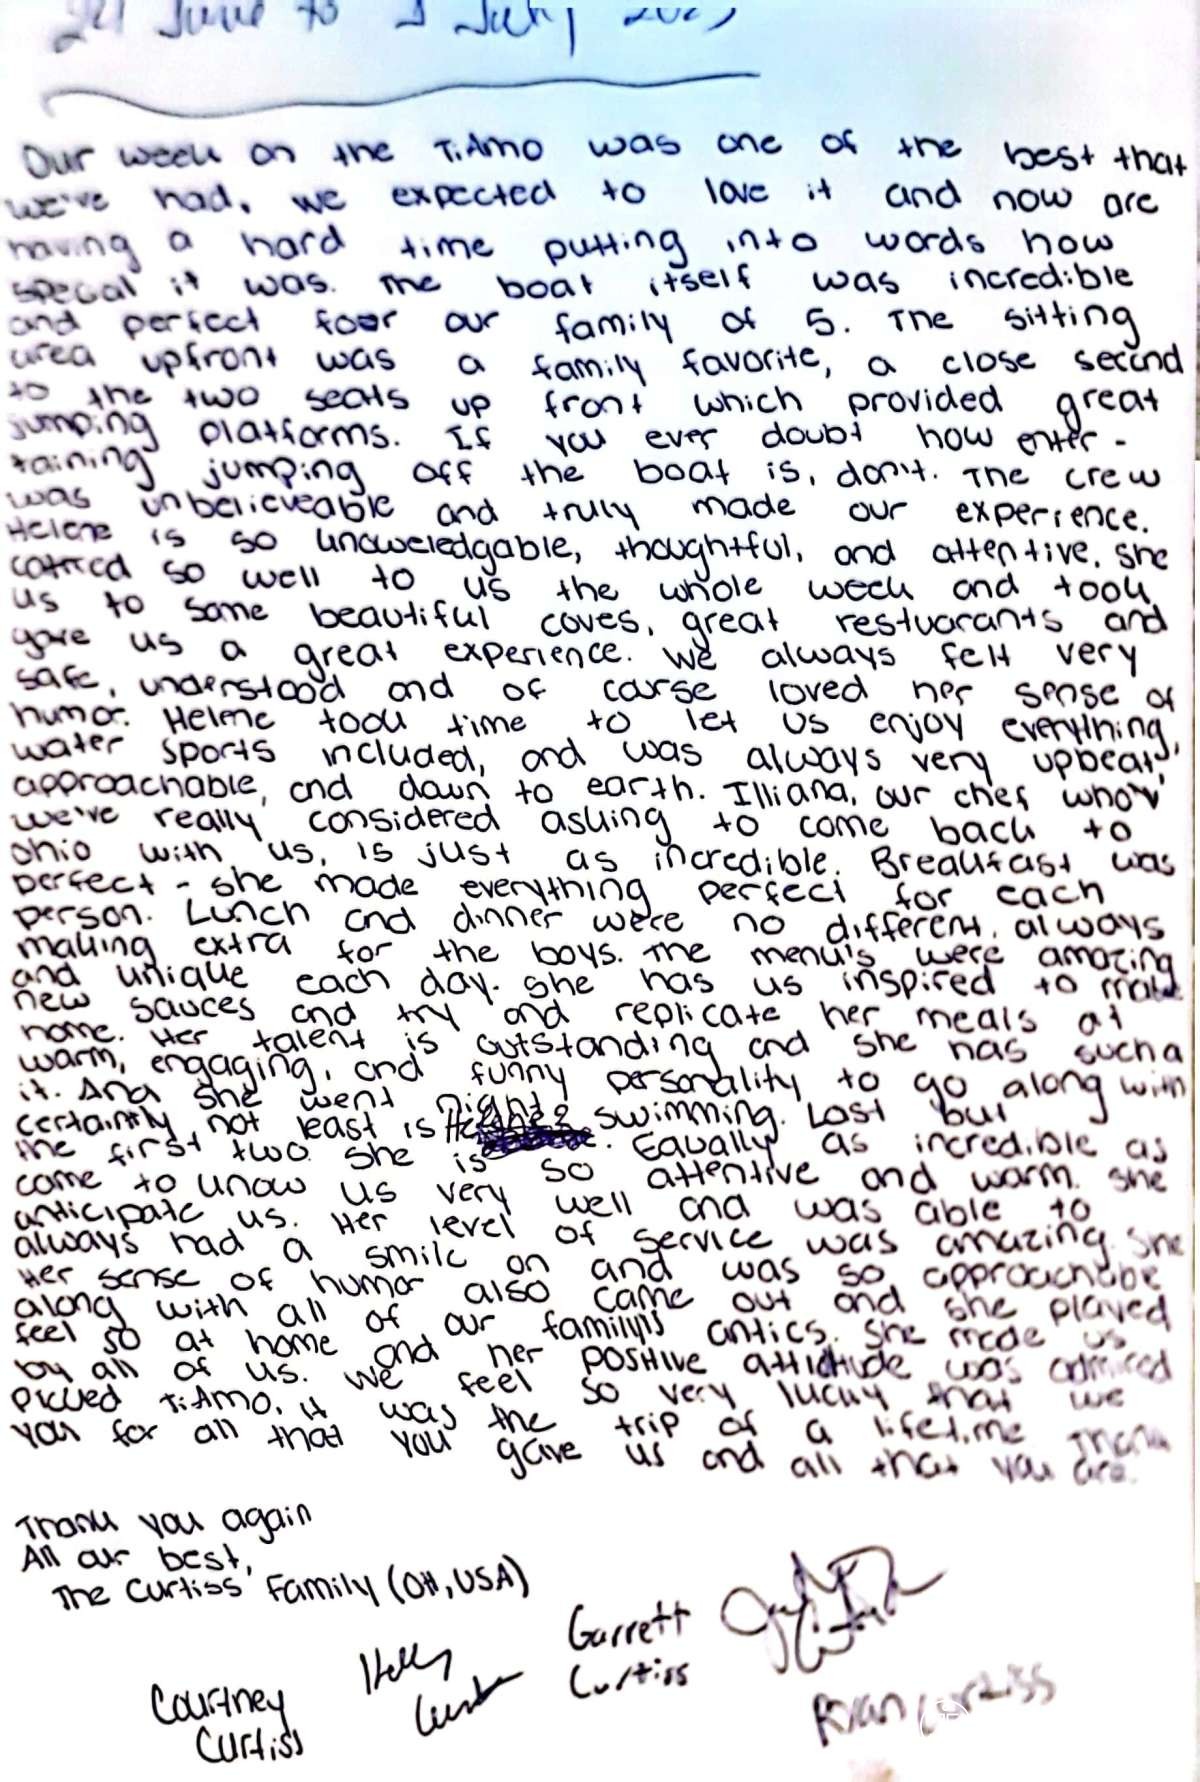 24 June to 1 July 2023
Our week on the TiAmo was one of the best that
we've had. we expected to love it and now are
having a hard time putting into words how
special it was. The boat itself was incredible
and perfect foor our family of 5. The sitting
area upfront was a family favorite, a close second
to the two seats up front which provided great
jumping platforms. If you ever doubt how enter-
taining jumping off the boat is, don't. The crew
was unbelieveable and truly made our experience.
Helene is so knoweledgable, thoughtful, and attentive. She
catred so well to us the whole week and took
us to some beautiful coves, great restuarants and
gave us a great experience. We always felt very
safe, understood and of carse loved her sense of
humor. Helene took time to let us enjoy everything,
water sports included, and was always very upbeat,
approachable, and down to earth. Illiana, our chef who
we've really considered asking to come back to
Ohio with us, is just as incredible. Breakfast was
perfect - she made everything perfect for each
person. Lunch and dinner were no different, always
making extra for the boys. The menu's were amazing
and unique each day. She has us inspired to make
new sauces and try and replicate her meals at
home. Her talent is outstanding and she has such a
warm, engaging, and funny personality to go along with
it. And she went night swimming. Last but
certaintly not least is
the first two. She is so attentive and warm. She Equally as incredible as
came to know us very well and was able to
anticipate us. Her level of service was amazing. She
always had a smile on and was so approachabe
Her sense of humor also came out and she played
along with all of our family's antics. She made us
feel so at home and her positive attidtude was admired
by all of us. We feel so very lucky that we
picked TiAmo. it was the trip of a lifetime. Thank
you for all that you gave us and all that you are.
Thank you again
All our best,
The Curtiss' Family (OH, USA)
Courtney
Curtiss
Garrett
Curtiss
Ryan Curtiss